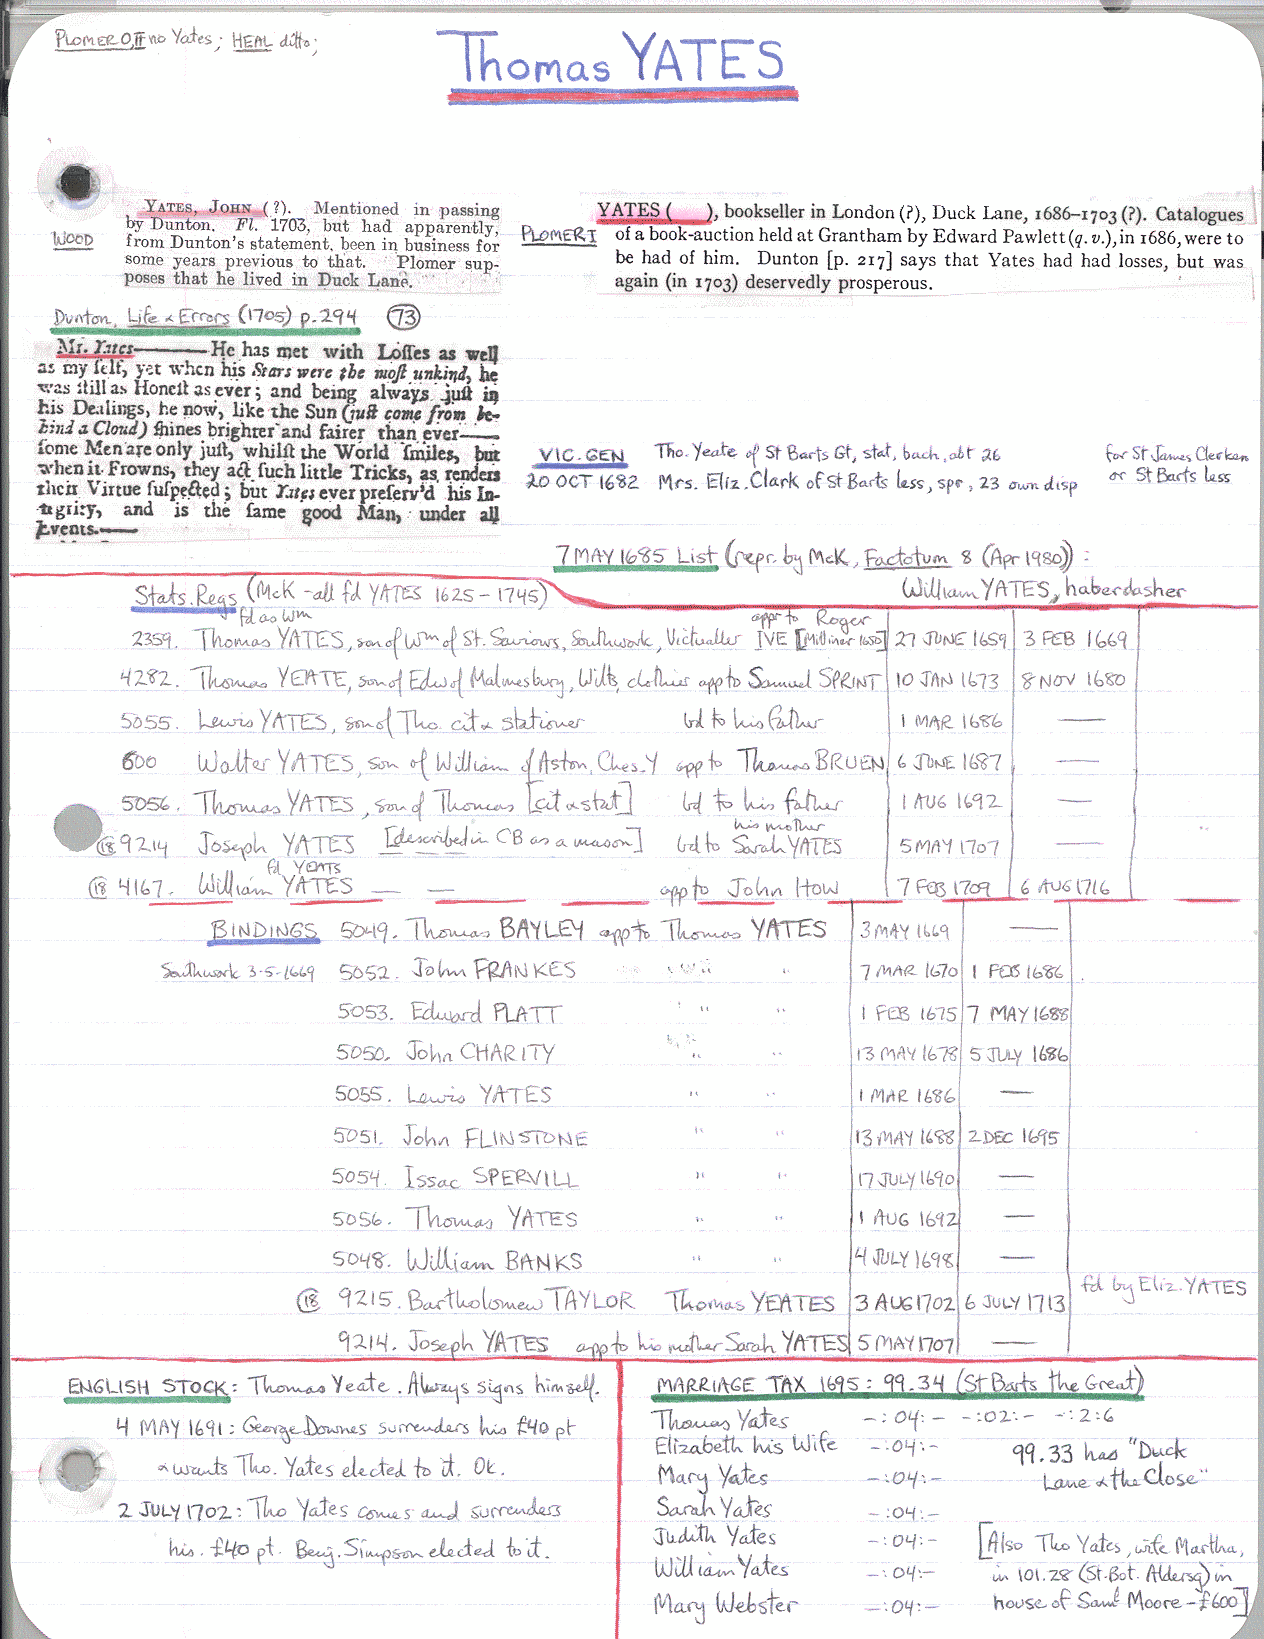 PLOMER O, II no Yates; HEAL ditto;
Thomas YATES
WOOD
YATES, JOHN (?). Mentioned in passing
by Dunton. Fl. 1703, but had apparently,
from Dunton's statement, been in business for
some years previous to that. Plomer sup-
poses that he lived in Duck Lane.
PLOMER I
YATES ( ), bookseller in London (?), Duck Lane, 1686–1703 (?). Catalogues
of a book-auction held at Grantham by Edward Pawlett (q. v.), in 1686, were to
be had of him. Dunton [p. 217] says that Yates had had losses, but was
again (in 1703) deservedly prosperous.
Dunton, Life & Errors (1705) p. 294 (73)
Mr. Yates——— He has met with Loſſes as well
as my ſelf, yet when his Stars were the moſt unkind, he
was ſtill as Honeſt as ever; and being always juſt in
his Dealings, he now, like the Sun (juſt come from be-
hind a Cloud) ſhines brighter and fairer than ever——
ſome Men are only juſt, whilſt the World ſmiles, but
when it Frowns, they act ſuch little Tricks, as renders
their Virtue ſuſpected; but Yates ever preſerv'd his In-
tegrity, and is the ſame good Man, under all
Events.——
VIC. GEN Tho. Yeate of St Barts Gt, stat, bach, abt 26 for St James Clerken
20 OCT 1682 Mrs. Eliz. Clark of St Barts less, spr, 23 own disp or St Barts less
7 MAY 1685 List (repr. by McK, Factotum 8 (Apr 1980)) :
William YATES, haberdasher
Stats. Regs (McK - all fd YATES 1625 - 1745)
fd as Wm
appr to Roger
2359. Thomas YATES, son of Wm of St. Saviours, Southwork, Victualler IVE [Milliner 1650] 27 JUNE 1659 3 FEB 1669
4282. Thomas YEATE, son of Edw of Malmesbury, Wilts, clothier app to Samuel SPRINT 10 JAN 1673 8 NOV 1680
5055. Lewis YATES, son of Tho. cit & stationer bd to his father 1 MAR 1686 —
600 Walter YATES, son of William of Aston, Ches. Y app to Thomas BRUEN 6 JUNE 1687 —
5056. Thomas YATES, son of Thomas [cit & stat] bd to his father 1 AUG 1692 —
his mother
(18) 9214 Joseph YATES [described in CB as a mason] bd to Sarah YATES 5 MAY 1707 —
fd YEATS
(18) 4167. William YATES — — app to John HOW 7 FEB 1709 6 AUG 1716
BINDINGS 5049. Thomas BAYLEY app to Thomas YATES 3 MAY 1669 —
Southwork 3-5-1669 5052. John FRANKES " " 7 MAR 1670 1 FEB 1686
5053. Edward PLATT " " 1 FEB 1675 7 MAY 1688
5050. John CHARITY " " 13 MAY 1678 5 JULY 1686
5055. Lewis YATES " " 1 MAR 1686 —
5051. John FLINSTONE " " 13 MAY 1688 2 DEC 1695
5054. Issac SPERVILL " " 17 JULY 1690 —
5056. Thomas YATES " " 1 AUG 1692 —
5048. William BANKS " " 4 JULY 1698 —
(18) 9215. Bartholomew TAYLOR Thomas YEATES 3 AUG 1702 6 JULY 1713 fd by Eliz. YATES
9214. Joseph YATES app to his mother Sarah YATES 5 MAY 1707 —
ENGLISH STOCK: Thomas Yeate. Always signs himself.
4 MAY 1691: George Downes surrenders his £40 pt
& wants Tho. Yates elected to it. Ok.
2 JULY 1702: Tho Yates comes and surrenders
his £40 pt. Benj. Simpson elected to it.
MARRIAGE TAX 1695: 99.34 (St Barts the Great)
Thomas Yates -:04:- -:02:- -:2:6
Elizabeth his Wife -:04:-
Mary Yates -:04:-
Sarah Yates -:04:-
Judith Yates -:04:-
William Yates -:04:-
Mary Webster -:04:-
99.33 has "Duck
Lane & the Close"
[Also Tho Yates, wife Martha,
in 101.28 (St. Bot. Aldersg) in
house of Saml Moore - £600]